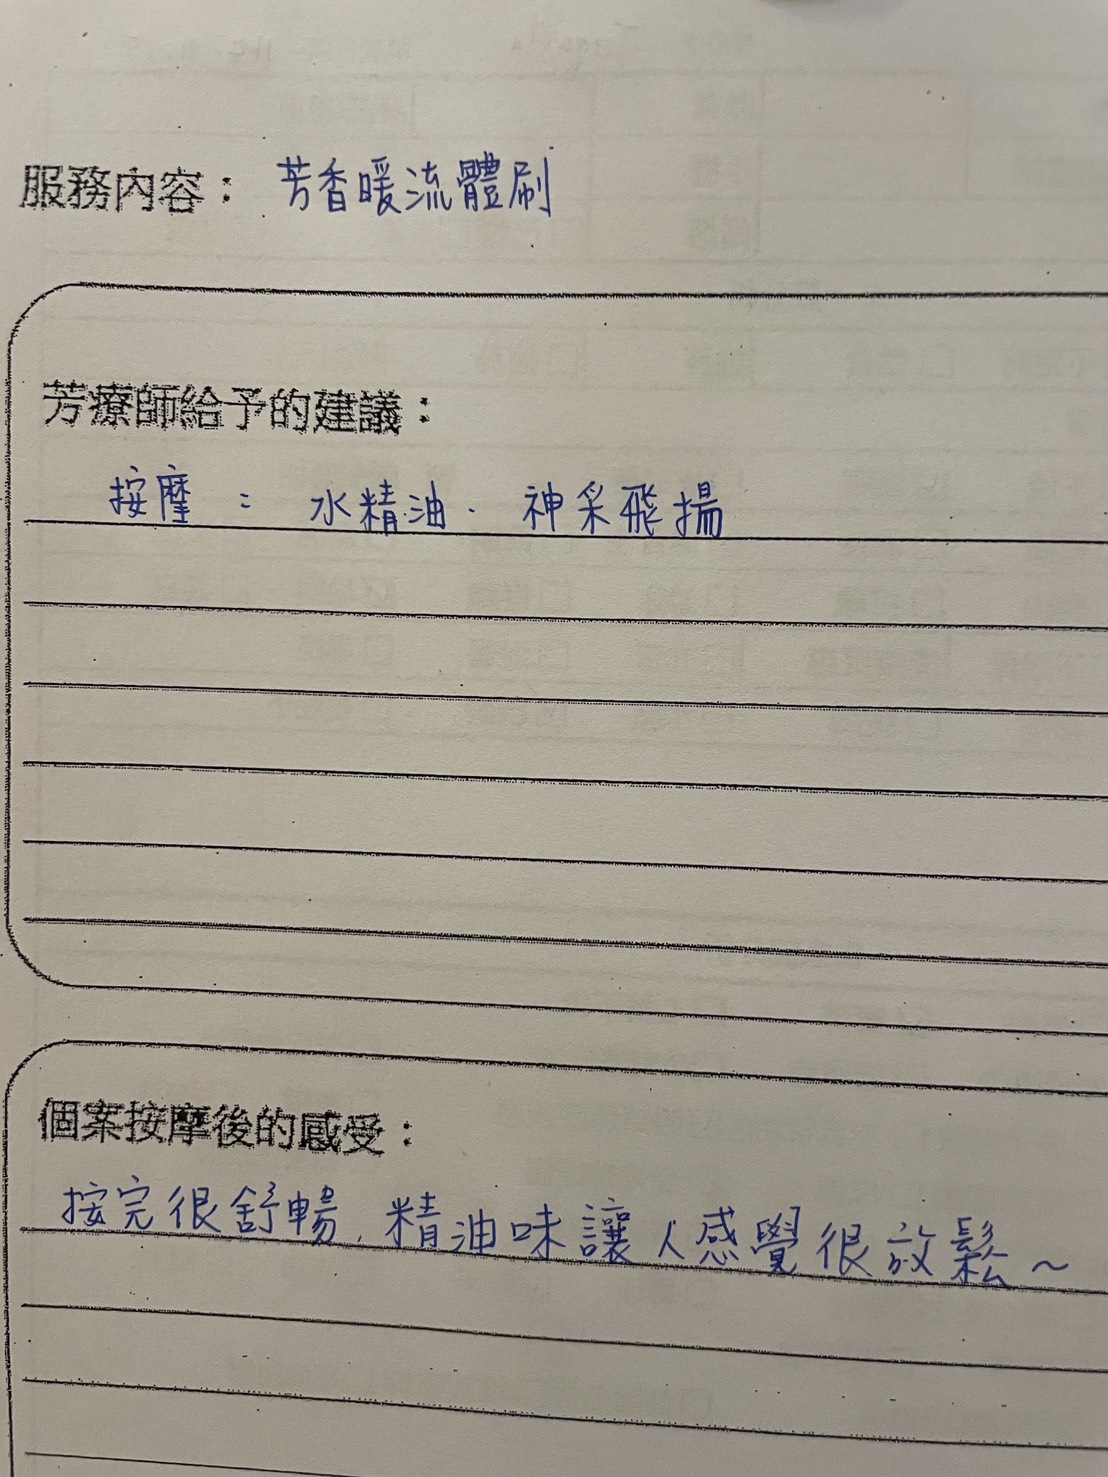 服務內容：芳香暖流體刷
芳療師給予的建議：
按摩：水精油．神采飛揚
個案按摩後的感受：
按完很舒暢，精油味讓人感覺很放鬆～